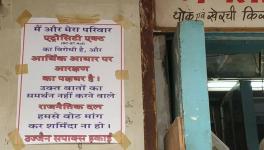 मैं और मेरा परिवार
एट्रोसिटी एक्ट
का विरोधी है, और
आर्थिक आधार पर
आरक्षण
का पक्षधर है।
उक्त बातों का
समर्थन नहीं करने वाले
राजनैतिक दल
हमसे वोट मांग
कर शर्मिंदा ना हो।
उज्जैन सपाक्स इकाई
थोक एवं खेरची